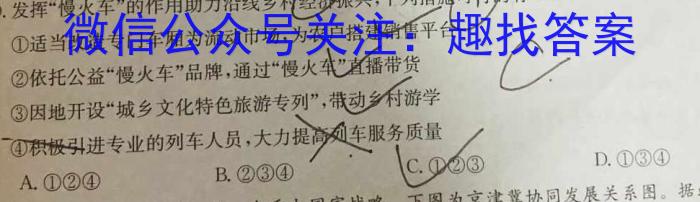 发挥“慢火车”的作用助力沿线乡村经济振兴，下列措施可行的有
微信公众号关注：趣找答案
①适当改造专门车厢为流动市场，为农户搭建销售平台
②依托公益“慢火车”品牌，通过“慢火车”直播带货
③因地开设“城乡文化特色旅游专列”，带动乡村游学
④积极引进专业的列车人员，大力提高列车服务质量
A.①②④ B.②③④ C.①②③ D.①③④
下图为京津冀协同发展关系图。据